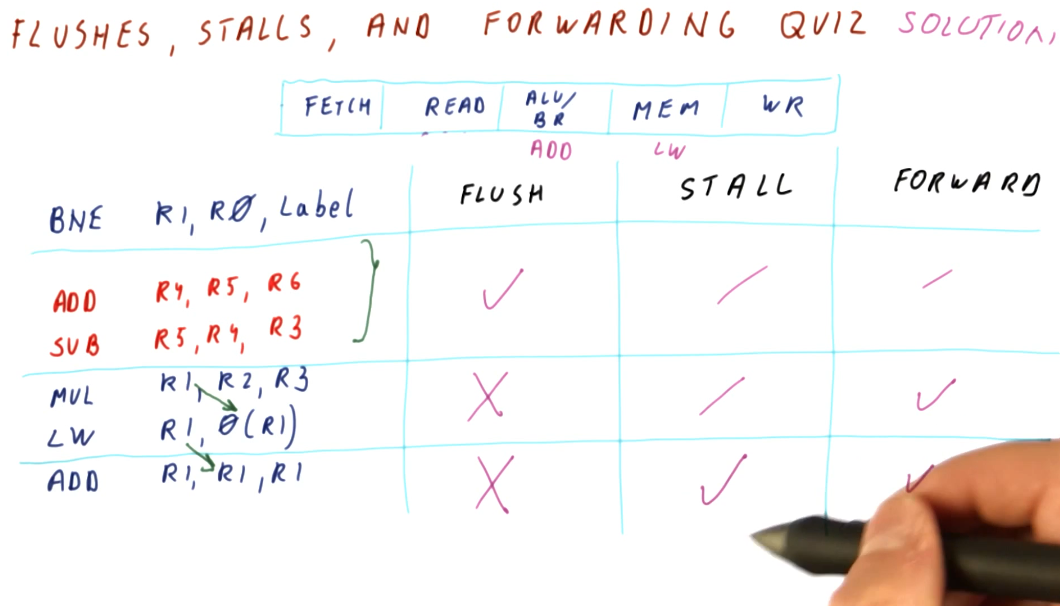 FLUSHES, STALLS, AND FORWARDING QUIZ SOLUTION,
FETCH READ ALU/BR MEM WR
ADD LW
FLUSH STALL FORWARD
BNE R1, RØ, Label
ADD R4, R5, R6
SUB R5, R4, R3
MUL R1, R2, R3
LW R1, Ø(R1)
ADD R1, R1, R1